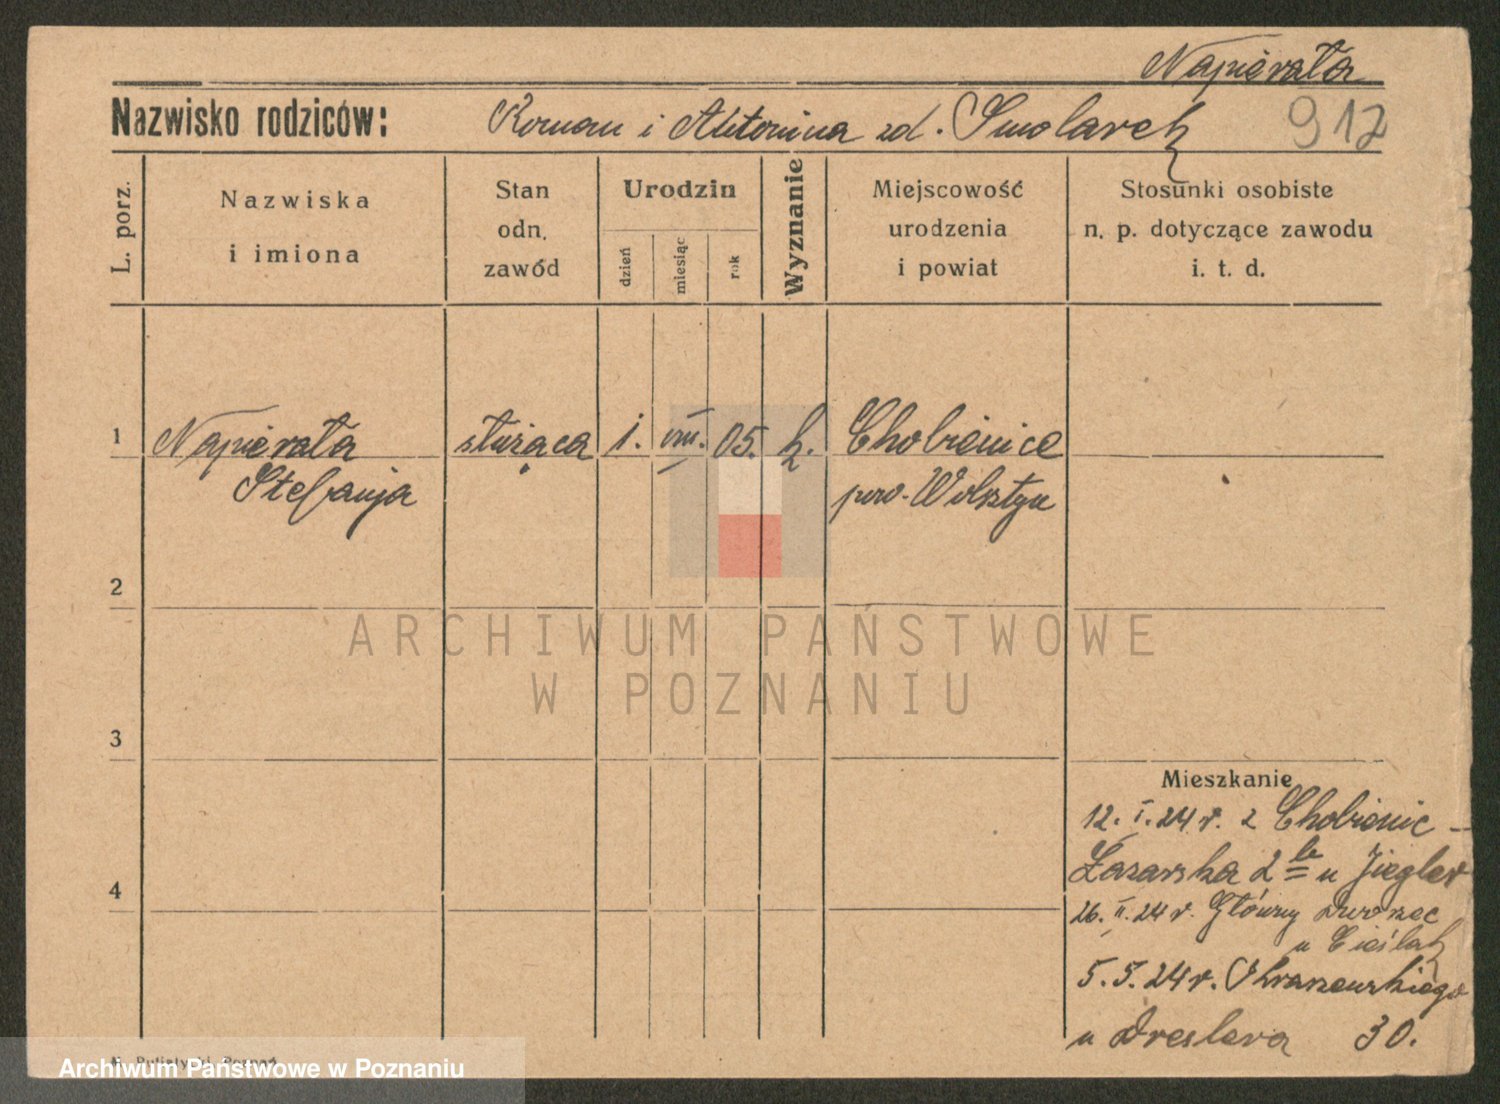 Napierała
Nazwisko rodziców: Roman i Antonina zd. Smolarek 917
L. porz.
Nazwiska
i imiona
Stan
odn.
zawód
Urodzin
dzień
miesiąc
rok
Wyznanie
Miejscowość
urodzenia
i powiat
Stosunki osobiste
n. p. dotyczące zawodu
i. t. d.
1 Napierała służąca 1. VIII. 05. k. Chobienice
Stefanja pow. Wolsztyn
2
ARCHIWUM PAŃSTWOWE
W POZNANIU
3
Mieszkanie
12. I. 24 r. z Chobienic -
Łazarska 2 b u Ziegler
4
26. II. 24 r. Główny dworzec
u Cieślak
5. 5. 24 r. Kraszewskiego
u Dreslera 30.
Poznań
Archiwum Państwowe w Poznaniu